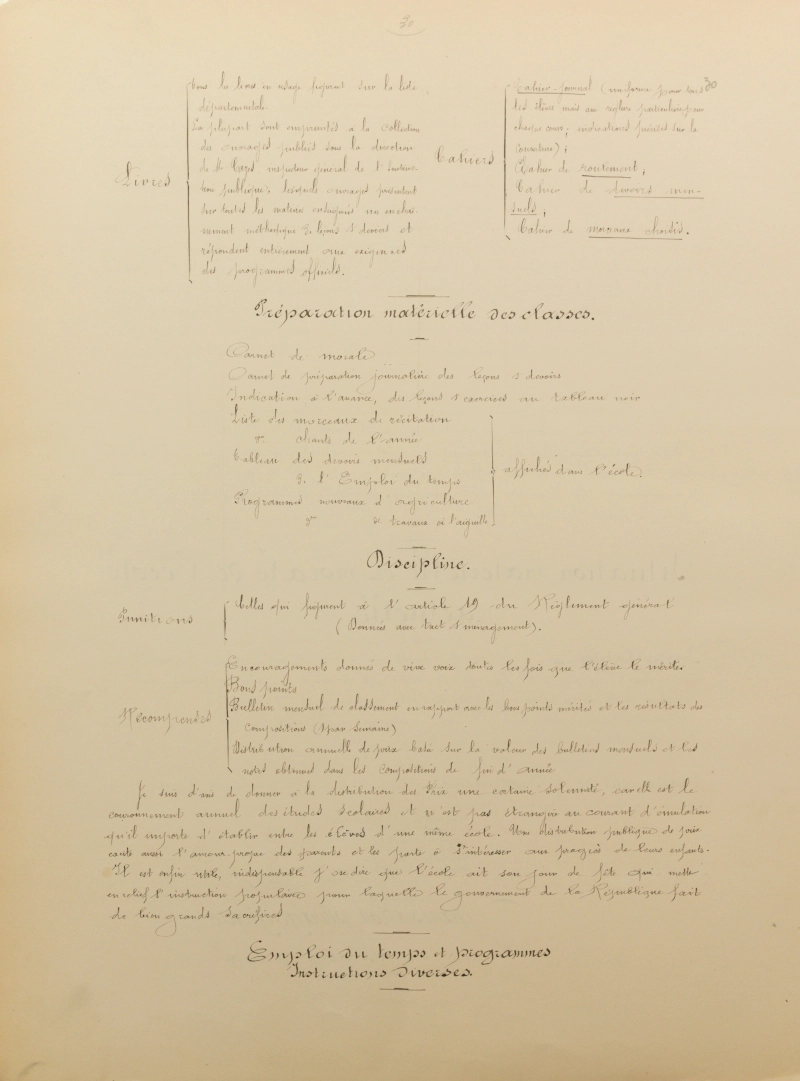 30
30
Livres
Tous les livres en usage figurent sur la liste
départementale.
La plupart sont empruntés à la collection
des ouvrages publiés sous la direction
de M. Cazes inspecteur général de l'Instruc-
tion publique, lesquels ouvrages présentent
sur toutes les matières enseignées un enchaî-
nement méthodique de leçons et devoirs et
répondent entièrement aux exigences
des programmes officiels.
Cahiers
Cahier-journal (uniforme pour tous
les élèves mais au réglure particulière pour
chaque cours; indications générales sur la
couverture);
Cahier de roulement;
Cahier de devoirs men-
suels;
Cahier de morceaux choisis.
Préparation matérielle des classes.
Carnet de morale
Carnet de préparation journalière des leçons et devoirs
Indication à l'avance, des leçons et exercices au tableau noir
Liste des morceaux de récitation
do chants de l'année
Tableau des devoirs mensuels
do l'Emploi du temps
Programmes nouveaux d'agriculture
do de travaux à l'aiguille
affichés dans l'école.
Discipline.
Punitions
Celles qui figurent à l'article 19 du Règlement général
(Données avec tact et ménagement).
Récompenses
Encouragements donnés de vive voix toutes les fois que l'élève le mérite.
Bons points
Bulletin mensuel de classement en rapport avec les bons points mérités et les résultats des
compositions (1 par semaine)
Distribution annuelle de prix basée sur la valeur des bulletins mensuels et les
notes obtenues dans les compositions de fin d'année
Je suis d'avis de donner à la distribution des Prix une certaine solennité, car elle est le
couronnement annuel des études scolaires et n'est pas étrangère au courant d'émulation
qu'il importe d'établir entre les élèves d'une même école. Une distribution publique de prix
excite aussi l'amour-propre des parents et les porte à s'intéresser aux progrès de leurs enfants.
Il est enfin utile, indispensable j'ose dire que l'école ait son jour de fête qui mette
en relief l'instruction populaire pour laquelle le gouvernement de la République fait
de bien grands sacrifices
Emploi du temps et programmes
Instructions diverses.